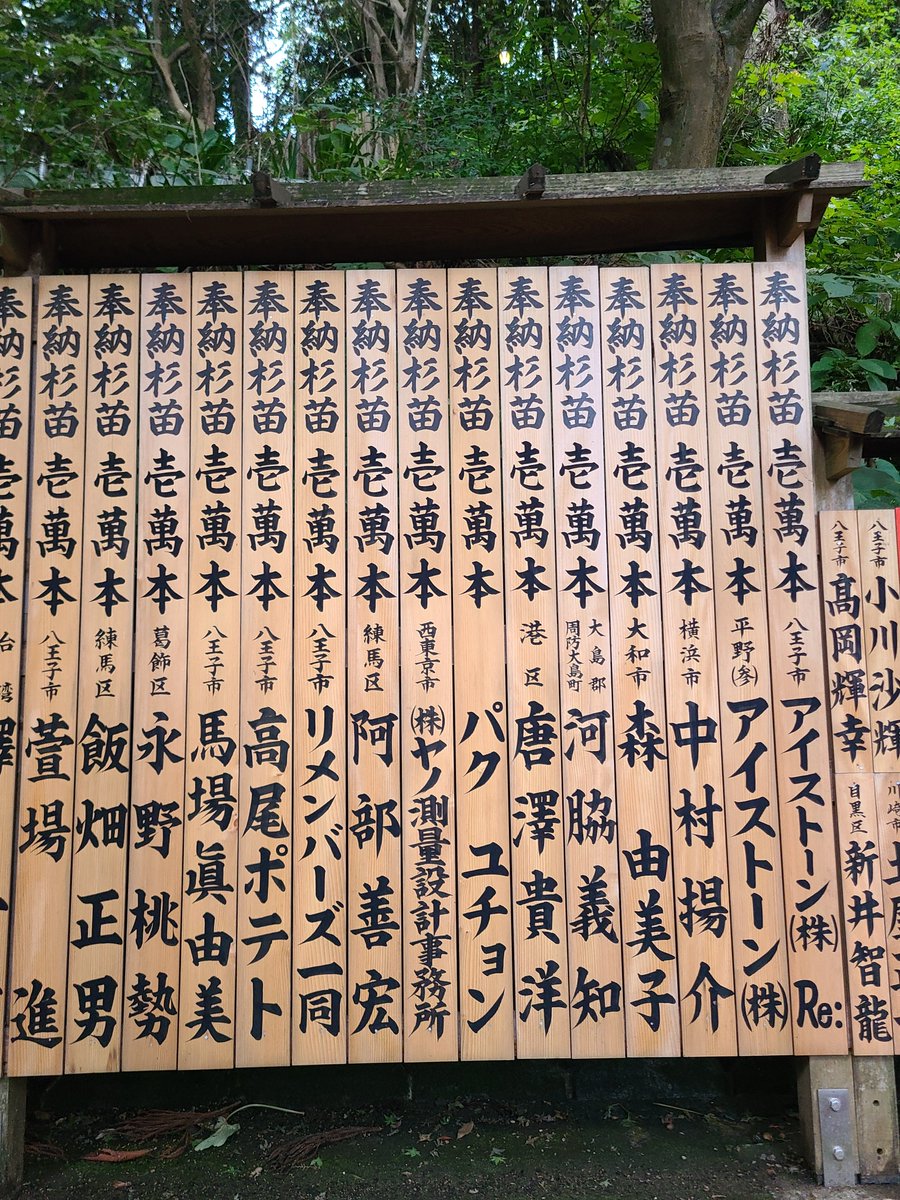 奉納杉苗壱萬本 八王子市 アイストーン(株) Re:
奉納杉苗壱萬本 平野(参) アイストーン(株)
奉納杉苗壱萬本 横浜市 中村揚介
奉納杉苗壱萬本 大和市 森由美子
奉納杉苗壱萬本 大島郡周防大島町 河脇義知
奉納杉苗壱萬本 港区 唐澤貴洋
奉納杉苗壱萬本 パク ユチョン
奉納杉苗壱萬本 西東京市 (株)ヤノ測量設計事務所
奉納杉苗壱萬本 練馬区 阿部善宏
奉納杉苗壱萬本 八王子市 リメンバーズ一同
奉納杉苗壱萬本 八王子市 高尾ポテト
奉納杉苗壱萬本 八王子市 馬場眞由美
奉納杉苗壱萬本 葛飾区 永野桃勢
奉納杉苗壱萬本 練馬区 飯畑正男
奉納杉苗壱萬本 八王子市 萱場進
奉納杉苗壱萬本 台湾
八王子市 小川沙輝
八王子市 髙岡輝幸
川崎市
目黒区 新井智龍